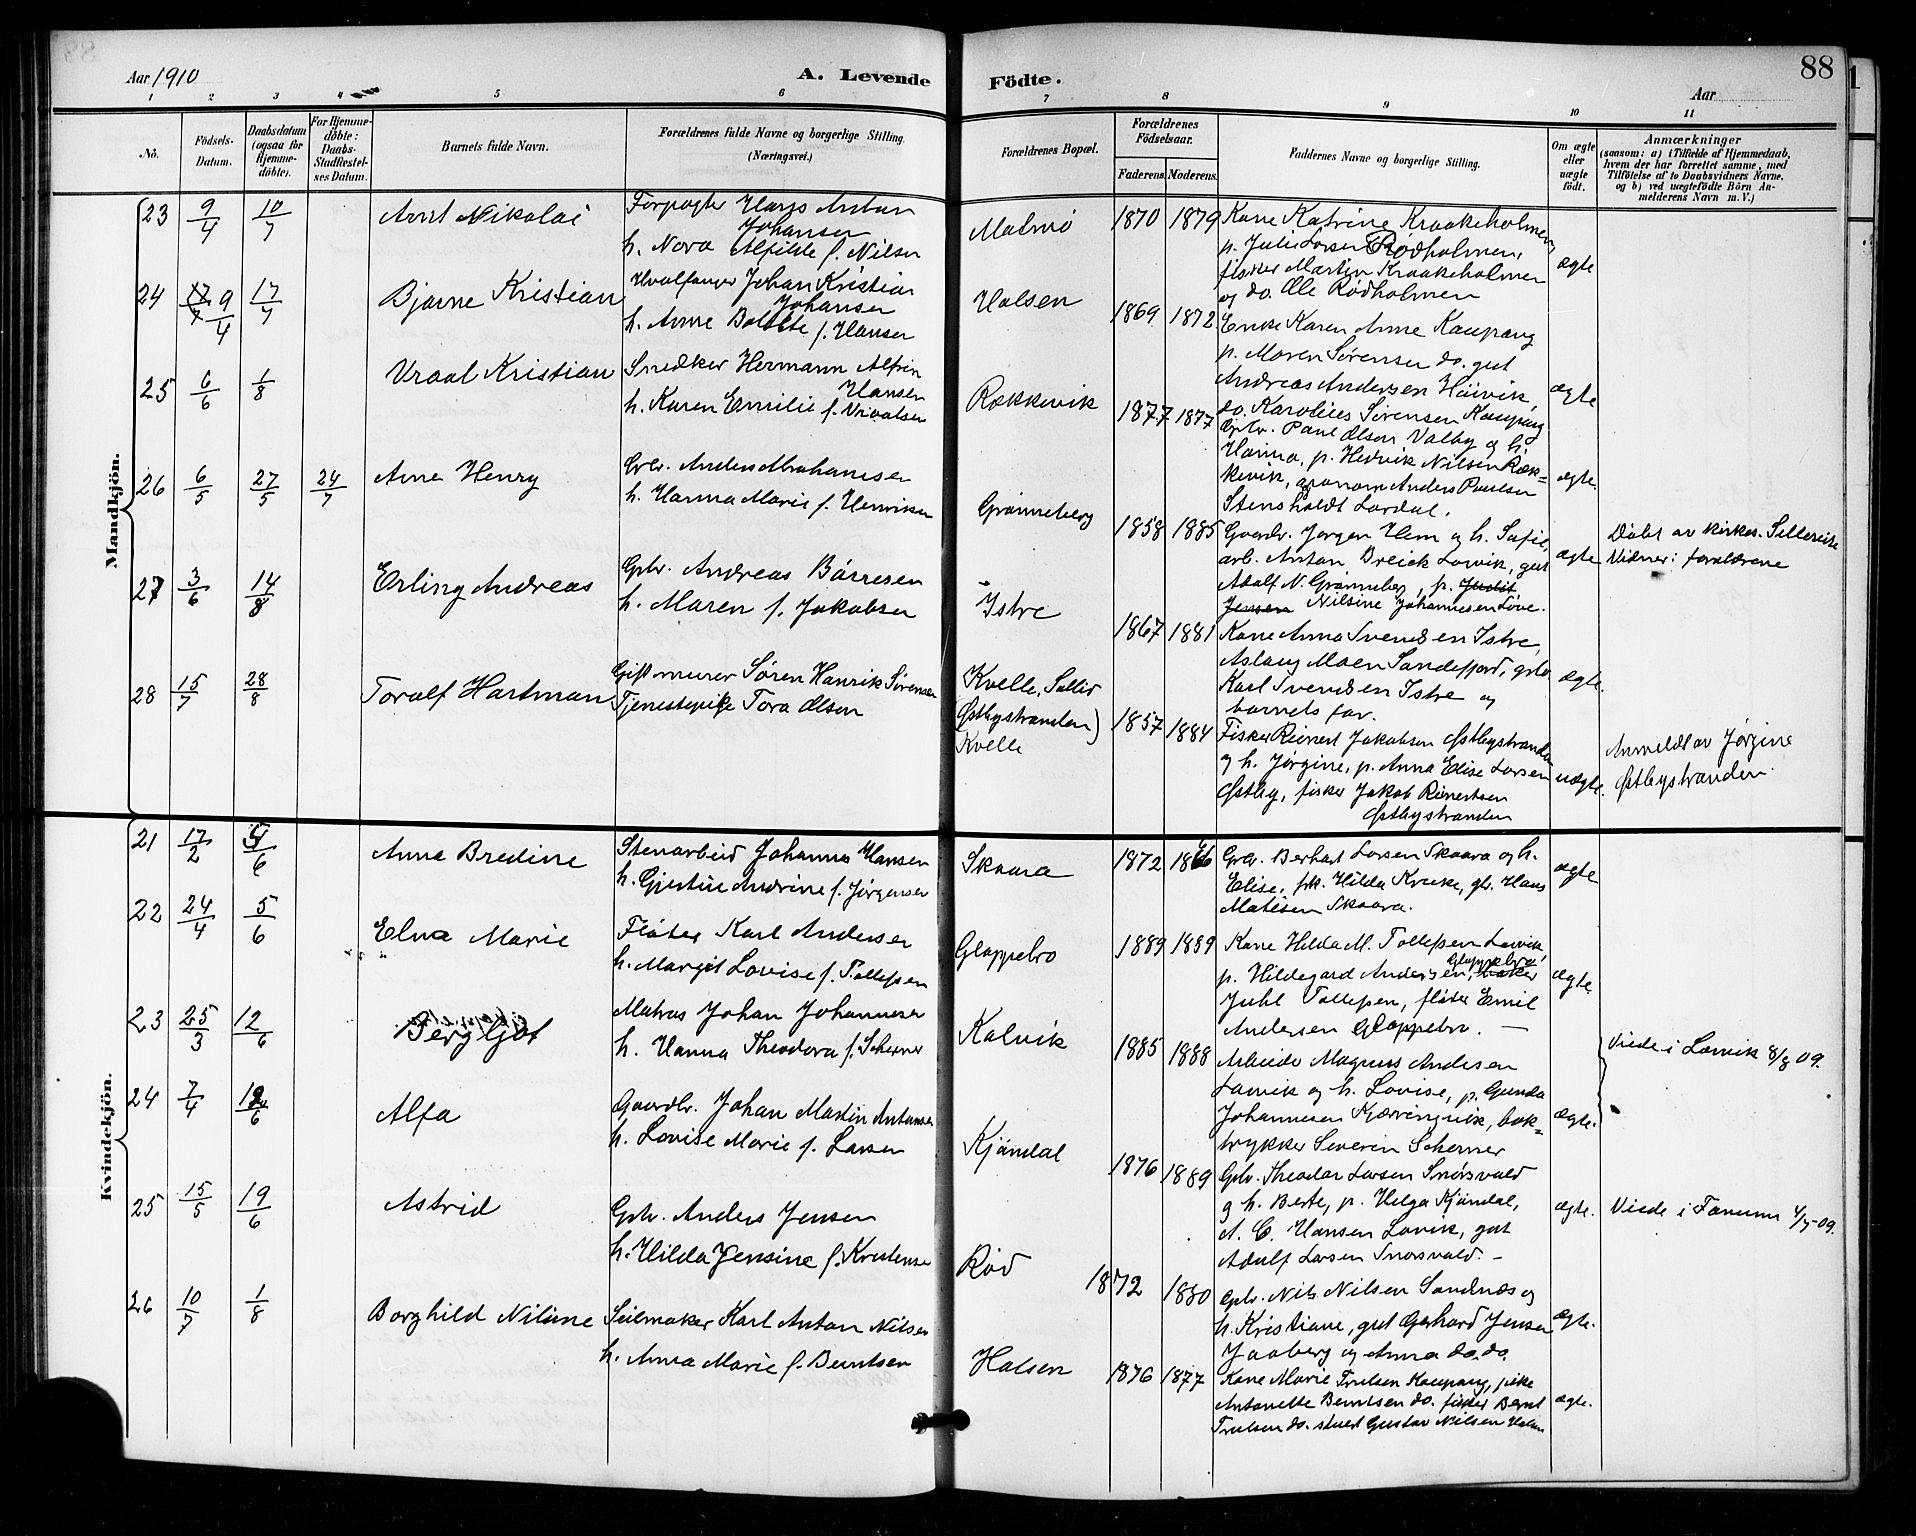 88
Aar 1910
A. Levende Födte.
Aar
1 2 3 4 5 6 7 8 9 10 11
No.
Födsels-Datum.
Daabsdatum (ogsaa for Hjemme-döbte).
For Hjemme-döbte: Daabs-Stadfæstel-ses Datum.
Barnets fulde Navn.
Forældrenes fulde Navne og borgerlige Stilling.
(Næringsvei.)
Forældrenes Bopæl.
Forældrenes Födselsaar.
Faderens. Moderens.
Faddernes Navne og borgerlige Stilling.
Om ægte eller uægte födt.
Anmærkninger
(saasom: a) i Tilfælde af Hjemmedaab,
hvem der har forrettet samme, med
Tilföielse af to Daabsvidners Navne.
og b) ved uægtefödte Börn An-
melderens Navn m. V.)
Mandkjön.
23 9/4 10/7 Arnt Nikolai
Forpagter Hans Anton
Johansen
h. Nora Alfilde f. Nilsen
Malmö 1870 1879
Kone Katrine Kraakeholmen,
p. Julie Larsen Rödholmen,
fisker Martin Kraakeholmen
og do. Ole Rødholmen
ægte
24 17/7 9/4 17/7 Bjarne Kristian
Hvalfanger Johan Kristian
Johansen
h. Anne Bolette f. Hansen
Halsen 1869 1872
Enke Karen Anne Kaupang
p. Maren Sørensen do. gut
Andreas Andersen Höivik,
do. Karolius Sørensen Kaupang
ægte
25 6/6 1/8 Vraal Kristian
Snedker Hermann Alfrin
Hansen
h. Karen Emilie f. Vraalsen
Rækkevik 1877 1877
Gbr. Paul Olsen Valby og h.
Hanna, p. Hedvik Nilsen Ræk-
kevik, agronom Anders Paulsen
Stensholdt Lardal.
ægte.
26 6/5 27/5 24/7 Arne Henry
Gbr. Anders Abrahamsen
h. Hanna Marie f. Henriksen
Grønneberg 1858 1885
Gaardbr. Jørgen Hem og h. Sofie,
arb. Anton Breiek Larvik, gut
Adolf N. Grønneberg, p. Judit
Jensen Nilsine Johannesen Løve.
ægte
Vidner: forældrene
27 3/6 14/8 Erling Andreas
Gbr. Andreas Bärresen
h. Maren f. Jakobsen
Istre 1867 1881
Kone Anna Svendsen Istre,
Aslaug Moen Sandefjord, gbr.
Karl Svendsen Istre og
barnets far.
ægte.
28 15/7 28/8 Toralf Hartman
Gift murer Søren Hanrik Sørensen
Tjenestepike Tora Olsen
Kvelle,
Østbystranden)
Kvelle
1857 1884
Fisker Rienert Jakobsen Østbystranden
og h. Jørgine, p. Anna Elise Larsen
Østby, fisker Jakob Rienertsen
Østbystranden
uægte.
Anmeldt av Jørgine
Østbystranden.
Kvindekjön.
21 17/2 5/6 Anna Bredine
Stenarbeid Johannes Hansen
h. Gjertine Andrine f. Jørgensen
Skaara 1872
Gbr. Berhart Larsen Skaara og h.
Elise, frk. Hilda Kveke, gb. Hans
Matisen Skaara.
ægte
22 24/4 5/6 Elna Marie
Fløter Karl Andersen
h. Margit Lovise f. Tollefsen
Gloppebro 1889 1889
Kone Hilda M. Tollefsen Larvik,
Gloppebro,
p. Hildegard Andersen,
Juhl Tollefsen, fløter Emil
Andersen Gloppebro. –
ægte
23 25/3 12/6 Bergljot
Matros Johan Johannesen
h. Hanna Theodora f. Scherner
Kalvik 1885 1888
Arbeider Magnus Andersen
Larvik og h. Lovise, p. Gunda
Johannesen Kjærringvik, bok-
trykker Severin Scherner
ægte.
Viede i Larvik 8/8 09.
24 7/4 12/6 Alfa
Gaardbr. Johan Martin Antonsen
h. Lovise Marie f. Larsen
Kjöndal 1876 1889
Gbr. Theodor Larsen Snørsvald
og h. Berte, p. Helga Kjöndal,
A. C. Hansen Larvik, gut
Adolf Larsen Snorsvald. –
ægte.
25 15/5 19/6 Astrid
Gbr. Anders Jensen
h. Hilda Jensine f. Kristensen
Röd 1872 1880
Gbr. Nils Nilsen Sandnæs og
h. Kristiane, gut Gerhard Jensen
Jaaberg og Anna do. do.
ægte.
26 10/7 1/8 Borghild Nilsine
Seilmaker Karl Anton Nilsen
h. Anna Marie f. Berntsen
Halsen 1876 1877
Kone Marie Trulsen Kaupang, pike
Antonette Berntsen do. fisker Bernt
Trulsen do. stuert Gustav Nilsen Halsen
ægte.